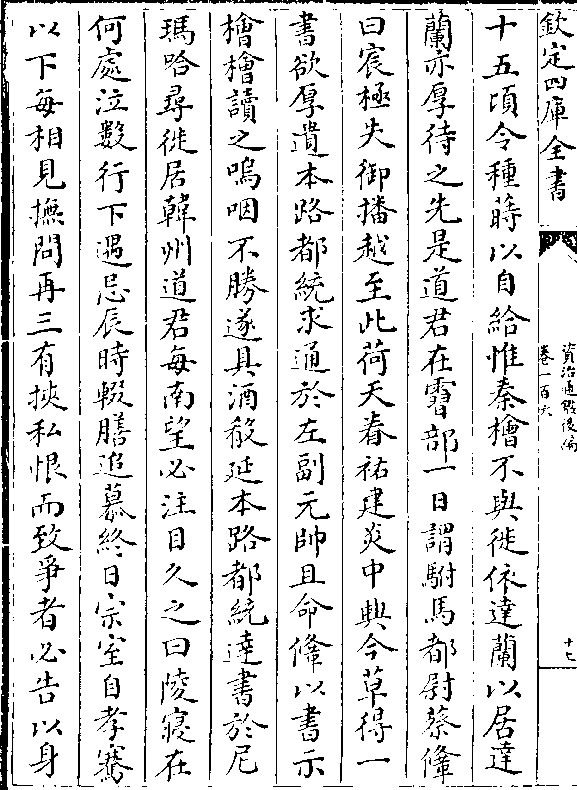 欽定四庫全書
資治通鑑後編
卷一百六
十七
十五頃令種蒔以自給惟秦檜不與徙依達蘭以居達
蘭亦厚待之先是道君在霫部一日謂駙馬都尉蔡鞗
曰宸極失御播越至此荷天眷祐建炎中興今草得一
書欲厚遺本路都統求通於左副元帥且命鞗以書示
檜檜讀之嗚咽不勝遂具酒殽延本路都統達書於尼
瑪哈尋徙居韓州道君每南望必注目久之曰陵寢在
何處泣數行下遇忌辰時輟膳追慕終日宗室自孝騫
以下每相見撫問再三有挾私恨而致爭者必告以身